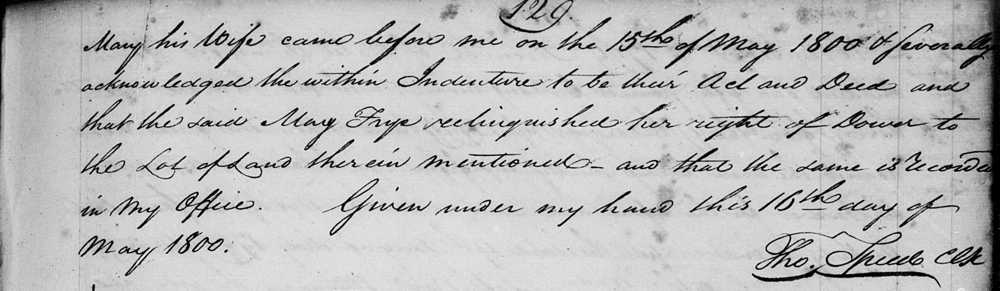 129.
Mary his Wife came before me on the 15th of May 1800 & severally
acknowledged the within Indenture to be their Act and Deed and
that the said Mary Frye relinquished her right of Dower to
the Lot of Land therein mentioned – and that the same is recorded
in my Office. Given under my hand this 16th day of
May 1800.
Tho. Speed Clk